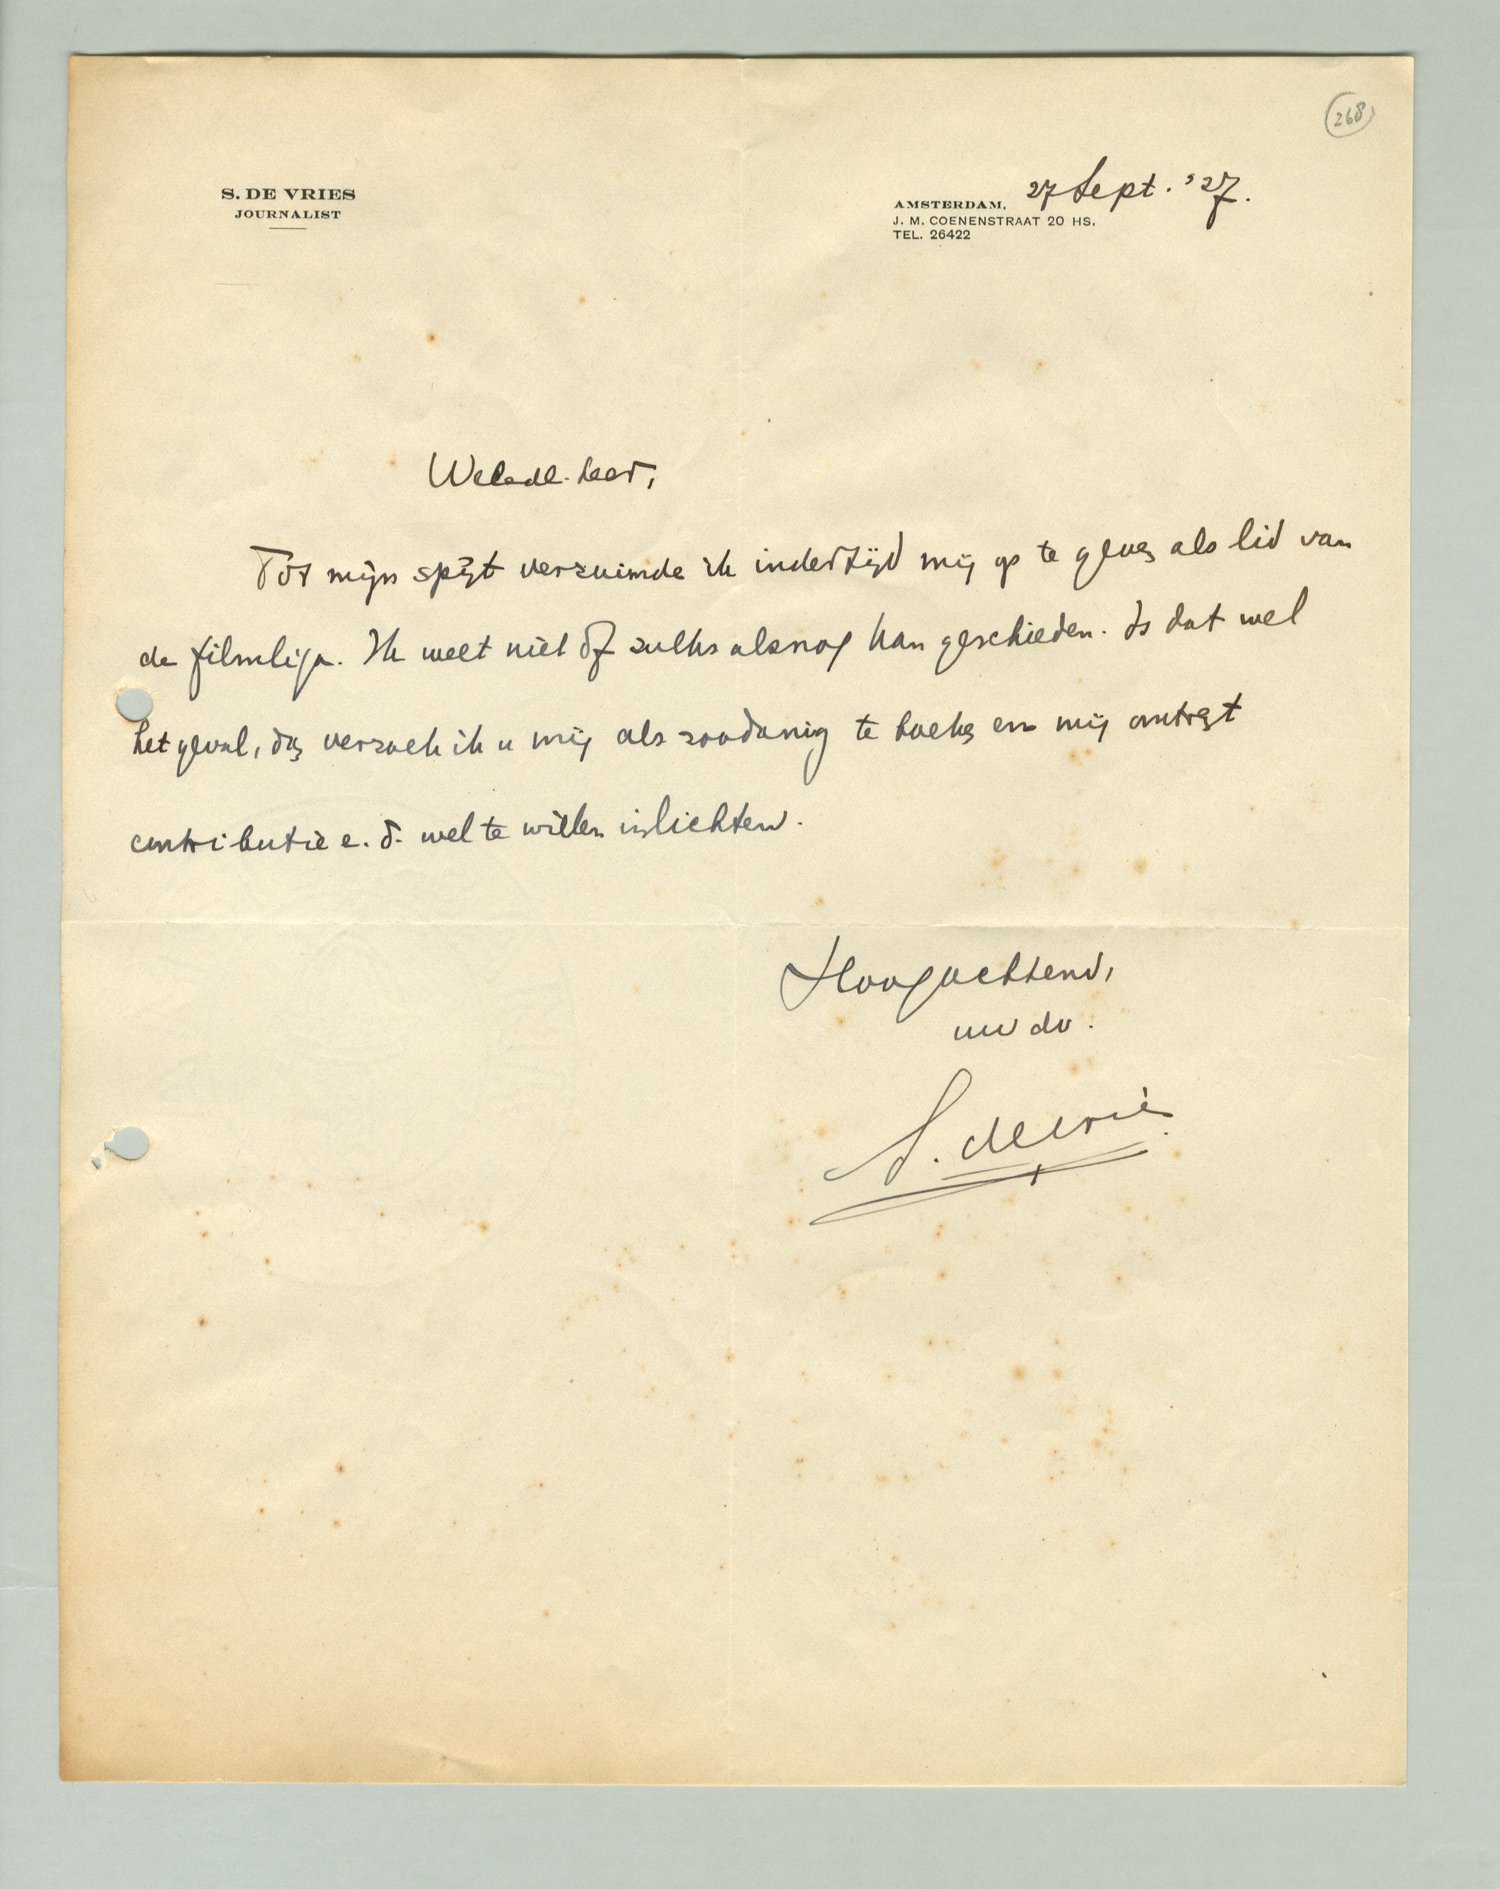 268
S. DE VRIES
JOURNALIST
AMSTERDAM, 27 Sept. '27.
J. M. COENENSTRAAT 20 HS.
TEL. 26422
Weledl. heer,
Tot mijn spijt verzuimde ik indertijd mij op te geven als lid van
de filmliga. Ik weet niet of zulks alsnog kan geschieden. Is dat wel
het geval, dan verzoek ik u mij als zoodanig te boeken en mij omtrent
contributie e. d. wel te willen inlichten.
Hoogachtend,
uw dv.
S. de Vries